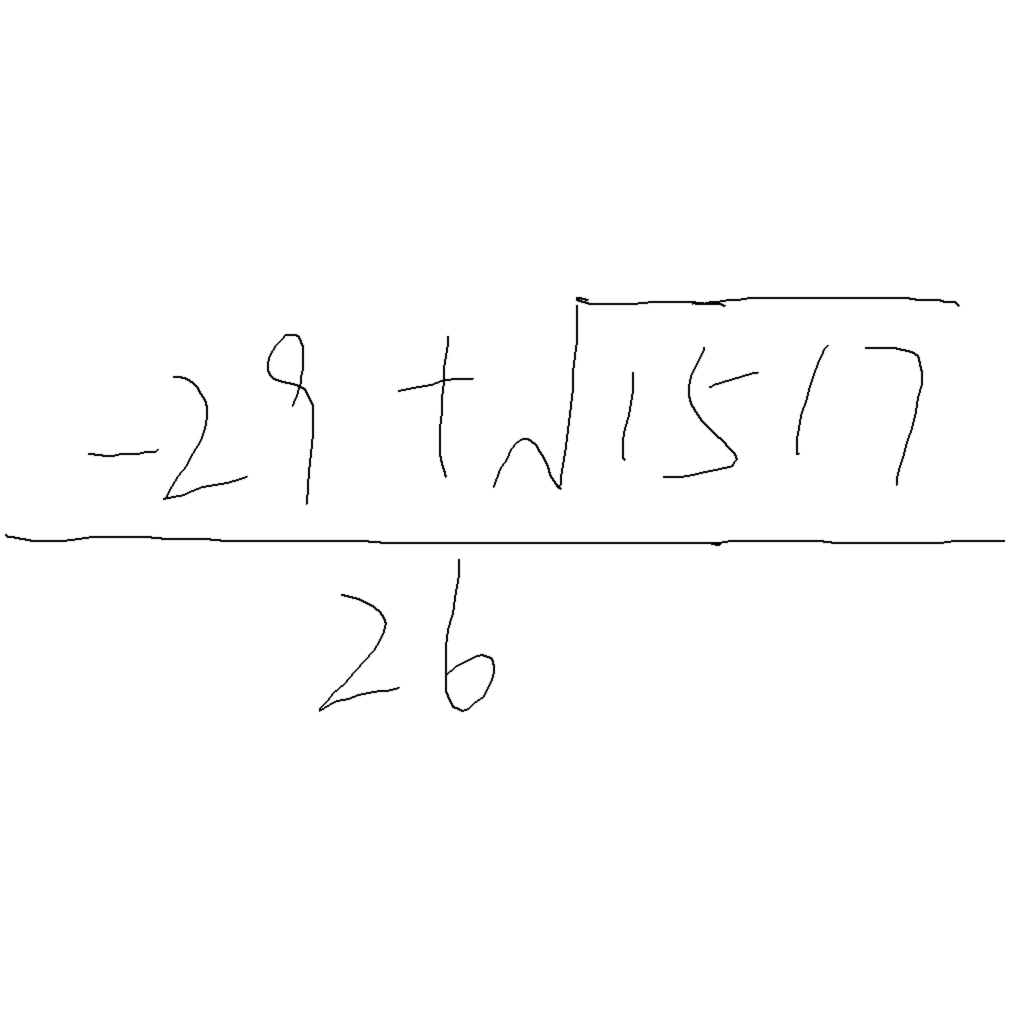 -29 + √1517
26